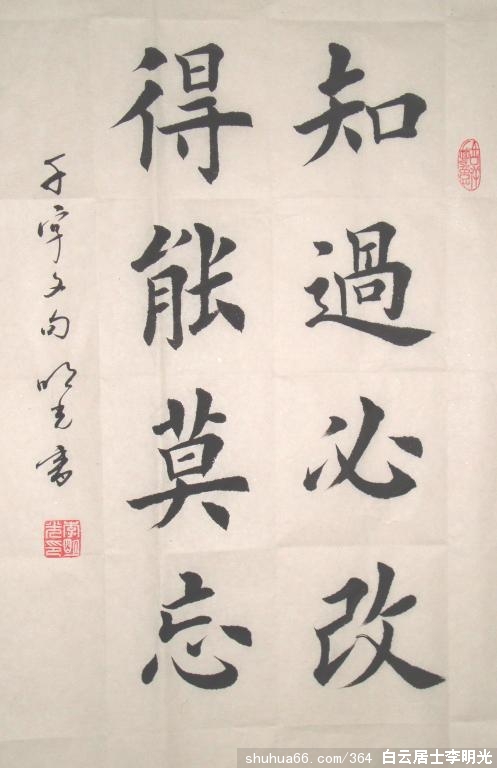 知過必改
得能莫忘
千字文句 明光书
shuhua66.com/364 白云居士李明光